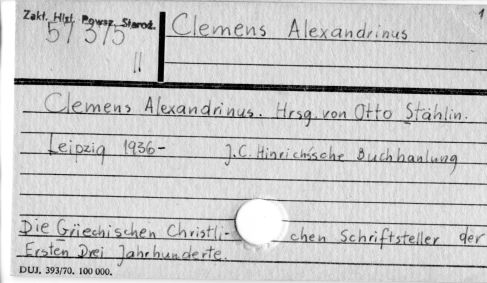 Zakł. Hist. Powsz. Staroż.
57375
II
Clemens Alexandrinus
1
Clemens Alexandrinus. Hrsg. von Otto Stählin.
Leipzig 1936- J.C. Hinrichs'sche Buchhanlung
Die Griechischen Christli- chen Schriftsteller der
Ersten Drei Jahrhunderte.
DUJ. 393/70. 100 000.